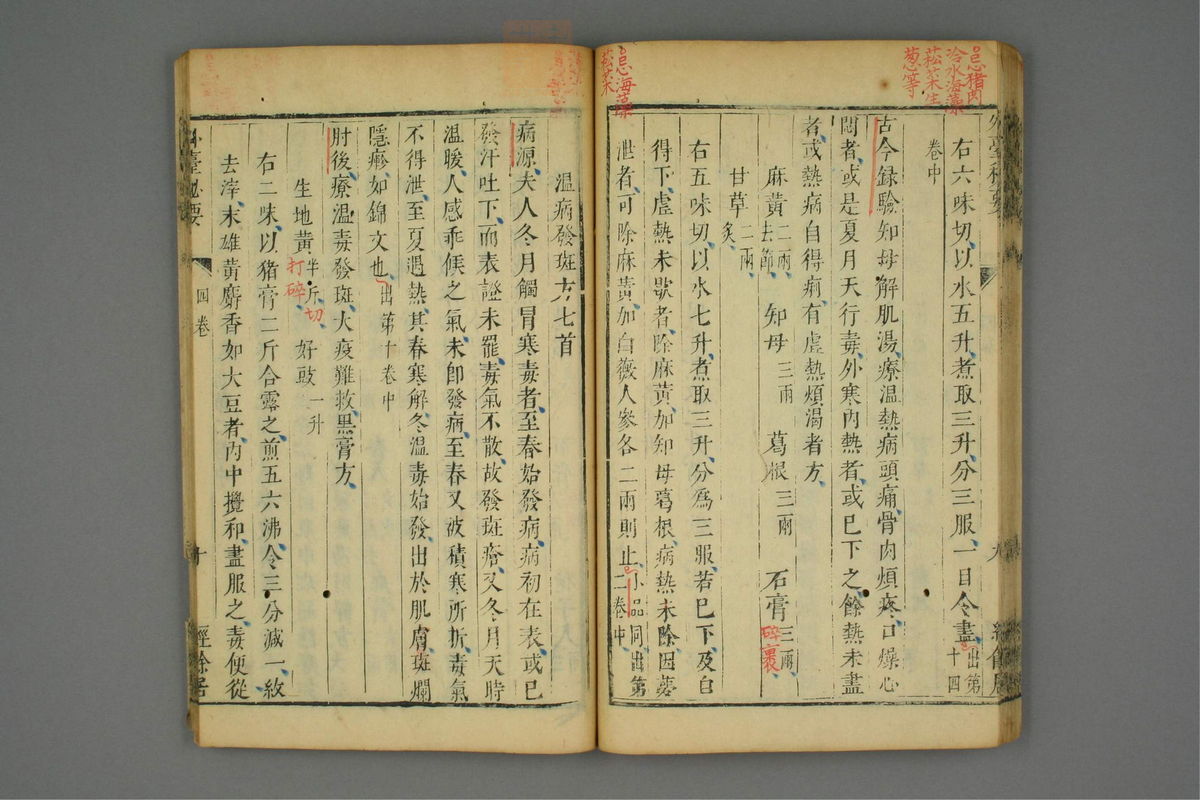 忌猪肉
冷水海藻
菘菜生
葱等
右六味切以水五升煮取三升分三服一日令盡出第十四
卷中
古今録驗知母解肌湯療溫熱病頭痛骨肉煩疼口燥心
悶者或是夏月天行毒外寒内熱者或已下之餘熱未盡
者或熱病自得痢有虛熱煩渴者方
麻黃二兩去節 知母三兩 葛根三兩 石膏三兩碎裹
甘草二兩炙
右五味切以水七升煮取三升分爲三服若已下及自
得下虛熱未歇者除麻黃加知母葛根病熱未除因夢
泄者可除麻黃加白薇人參各二兩則止小品同出第二卷中
忌海藻
菘菜
溫病發斑方七首
病源夫人冬月觸冒寒毒者至春始發病病初在表或已
發汗吐下而表證未罷毒氣不散故發斑瘡又冬月天時
溫暖人感乖候之氣未卽發病至春又被積寒所折毒氣
不得泄至夏遇熱其春寒解冬溫毒始發出於肌膚斑爛
隱疹如錦文也出第十卷中
肘後療溫毒發斑大疫難救黑膏方
生地黃半斤切打碎 好豉一升
右二味以猪膏二斤合露之煎五六沸令三分減一紋
去滓末雄黃麝香如大豆者内中攪和盡服之毒便從
外臺祕要 四卷 十 經餘居